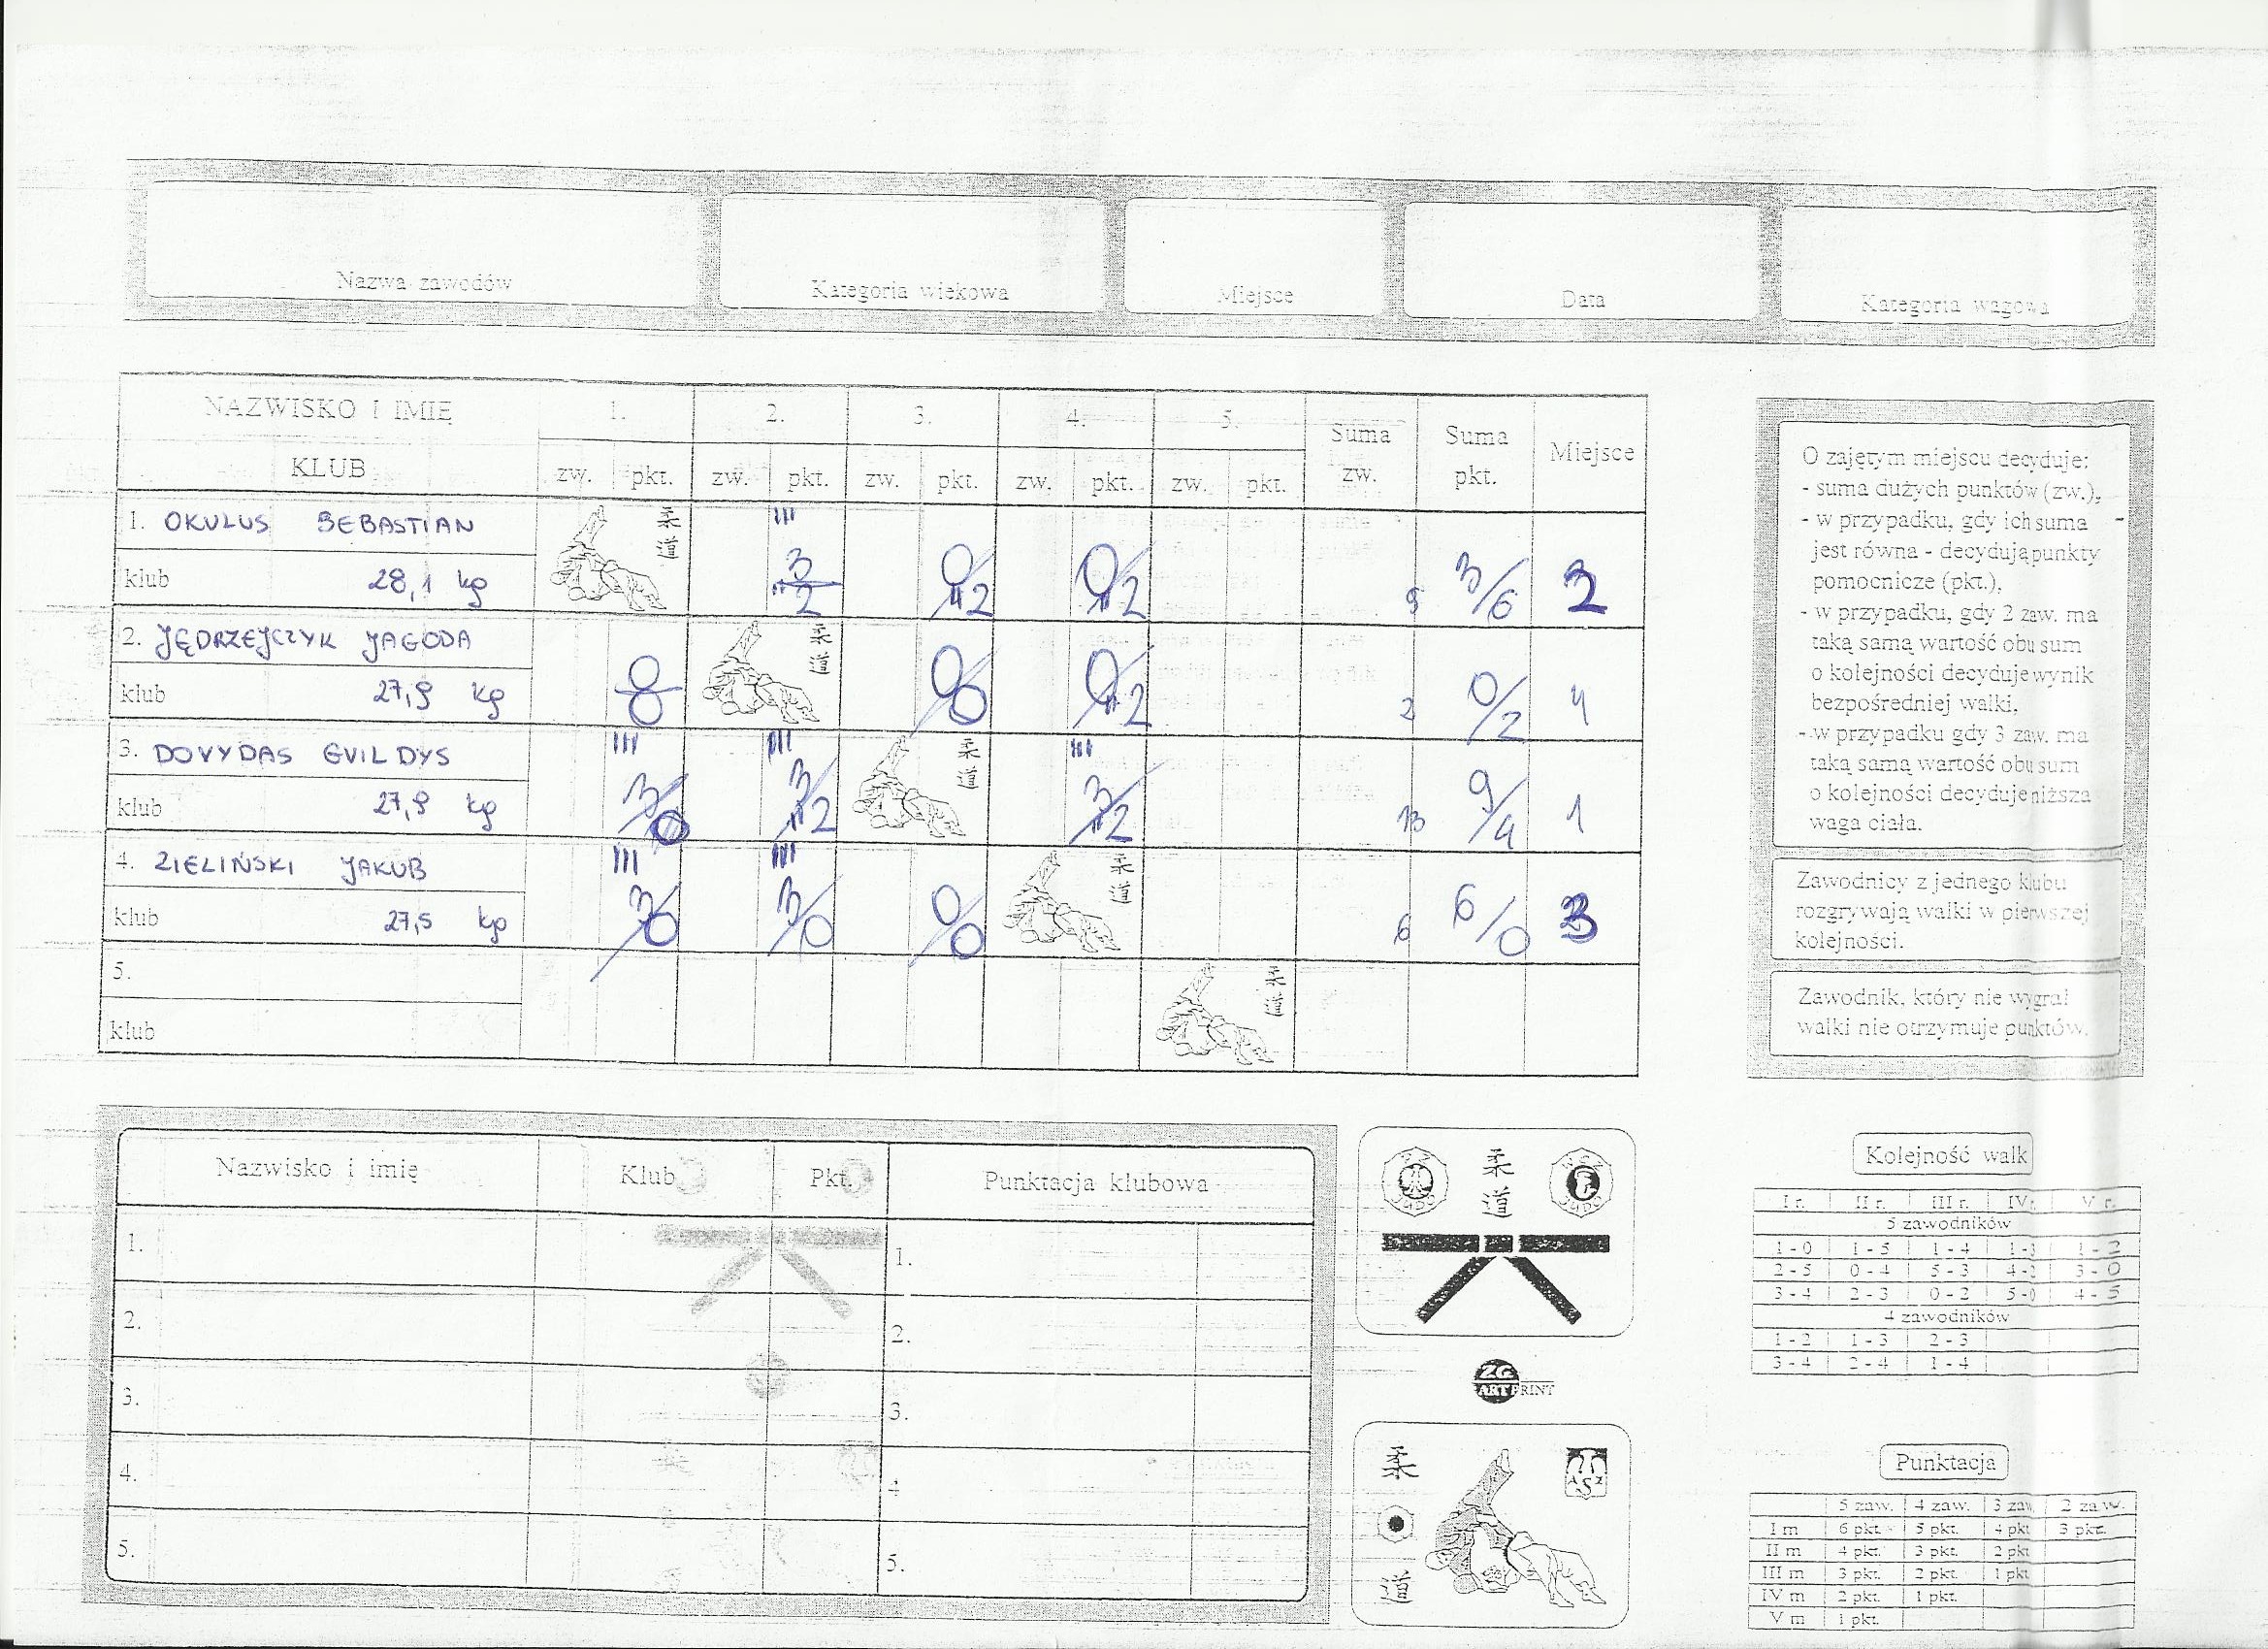 Nazwa zawodów
Kategoria wiekowa
Miejsce
Data
Kategoria wagowa
NAZWISKO I IMIĘ 1. 2. 3. 4. 5. Suma zw. Suma pkt. Miejsce
KLUB zw. pkt. zw. pkt. zw. pkt. zw. pkt. zw. pkt.
1. OKULUS SEBASTIAN III
klub 28,1 kg 3/2 0/2 0/2 9 3/6 2
2. JĘDRZEJCZYK JAGODA
klub 27,9 kg 0/0 0/0 0/2 2 0/2 4
3. DOVYDAS GVILDYS III III III
klub 27,9 kg 3/0 3/2 3/2 13 9/4 1
4. ZIELIŃSKI JAKUB III III
klub 27,5 kg 3/0 3/0 0/0 6 6/0 3
5.
klub
O zajętym miejscu decyduje:
- suma dużych punktów (zw.),
- w przypadku, gdy ich suma
jest równa - decydują punkty
pomocnicze (pkt.),
- w przypadku, gdy 2 zaw. ma
taką samą wartość obu sum
o kolejności decyduje wynik
bezpośredniej walki,
- w przypadku gdy 3 zaw. ma
taką samą wartość obu sum
o kolejności decyduje niższa
waga ciała.
Zawodnicy z jednego klubu
rozgrywają walki w pierwszej
kolejności.
Zawodnik, który nie wygrał
walki nie otrzymuje punktów.
Nazwisko i imię Klub Pkt. Punktacja klubowa
1. 1.
2. 2.
3. 3.
4. 4
5. 5.
柔
道
JUDO JUDO
ZG
ART PRINT
柔
道
AZS
Kolejność walk
I r. II r. III r. IV r. V r.
5 zawodników
1 - 0 1 - 5 1 - 4 1 - 3 1 - 2
2 - 5 0 - 4 5 - 3 4 - 2 3 - 0
3 - 4 2 - 3 0 - 2 5 - 0 4 - 5
4 zawodników
1 - 2 1 - 3 2 - 3
3 - 4 2 - 4 1 - 4
Punktacja
5 zaw. 4 zaw. 3 zaw. 2 zaw.
I m 6 pkt. 5 pkt. 4 pkt 3 pkt.
II m 4 pkt. 3 pkt. 2 pkt
III m 3 pkt. 2 pkt. 1 pkt
IV m 2 pkt. 1 pkt.
V m 1 pkt.